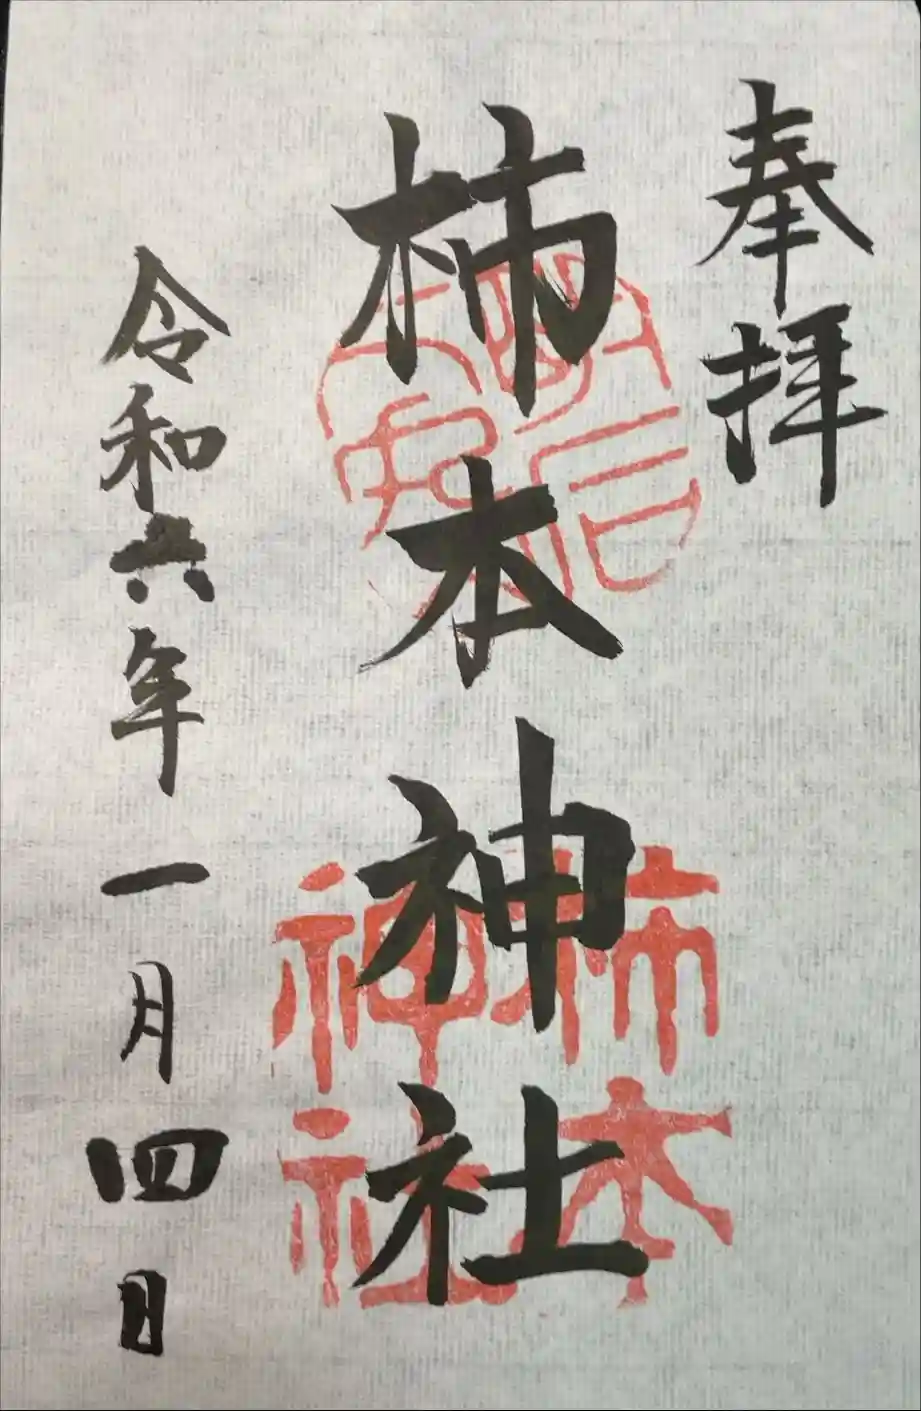 奉拝
柿本神社
令和六年一月四日
柿本
神社